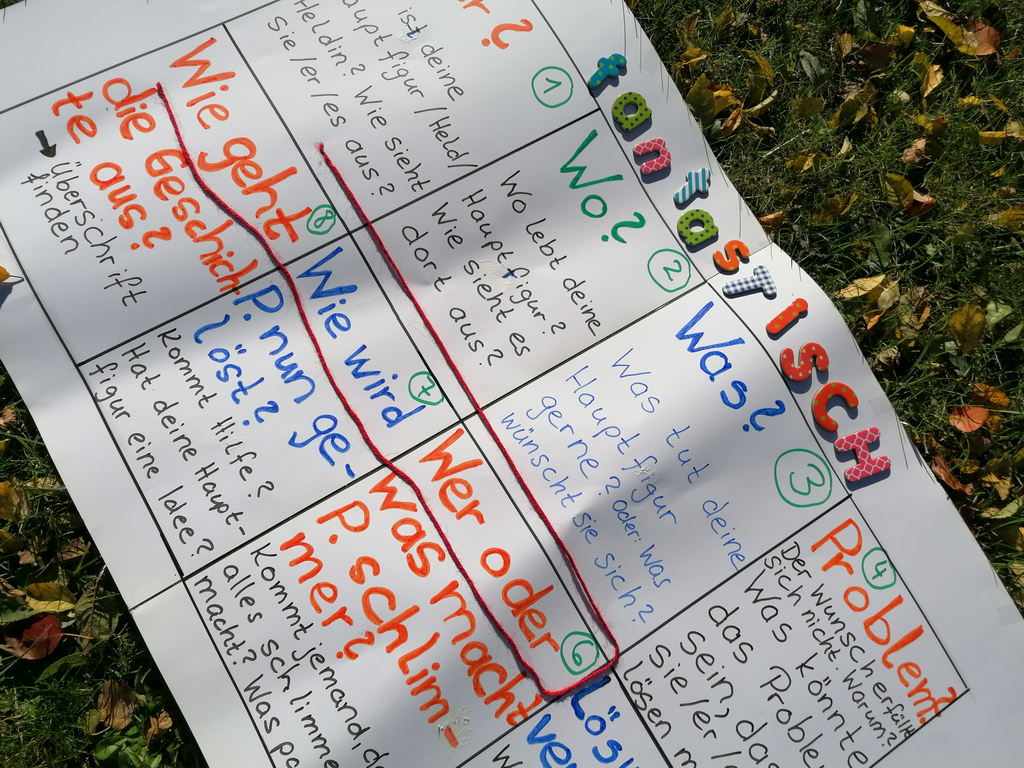 fantasTISCH
r?
1
ist deine
auptfigur/Held/
Heldin? Wie sieht
Sie/er/es aus?
Wo?
2
Wo lebt deine
Hauptfigur?
Wie sieht es
dort aus?
Was?
3
Was tut deine
Hauptfigur
gerne? oder: Was
wünscht sie sich?
Problem?
4
Der Wunsch erfüllt
sich nicht. Warum?
Was könnte
das Problem
sein, das
sie/er/
lösen m
Lösu
ve
W
Wer oder
was macht
P. schlim-
mer?
6
Kommt jemand, d
alles schlimme
macht? Was pa
Wie wird
P. nun ge-
löst?
7
Kommt Hilfe?
Hat deine Haupt-
figur eine Idee?
Wie geht
die Geschich
te aus?
8
→ Überschrift
finden